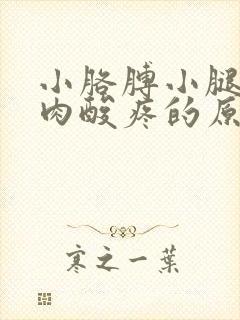 小胳膊小腿
肉酸疼的原
寒之一葉